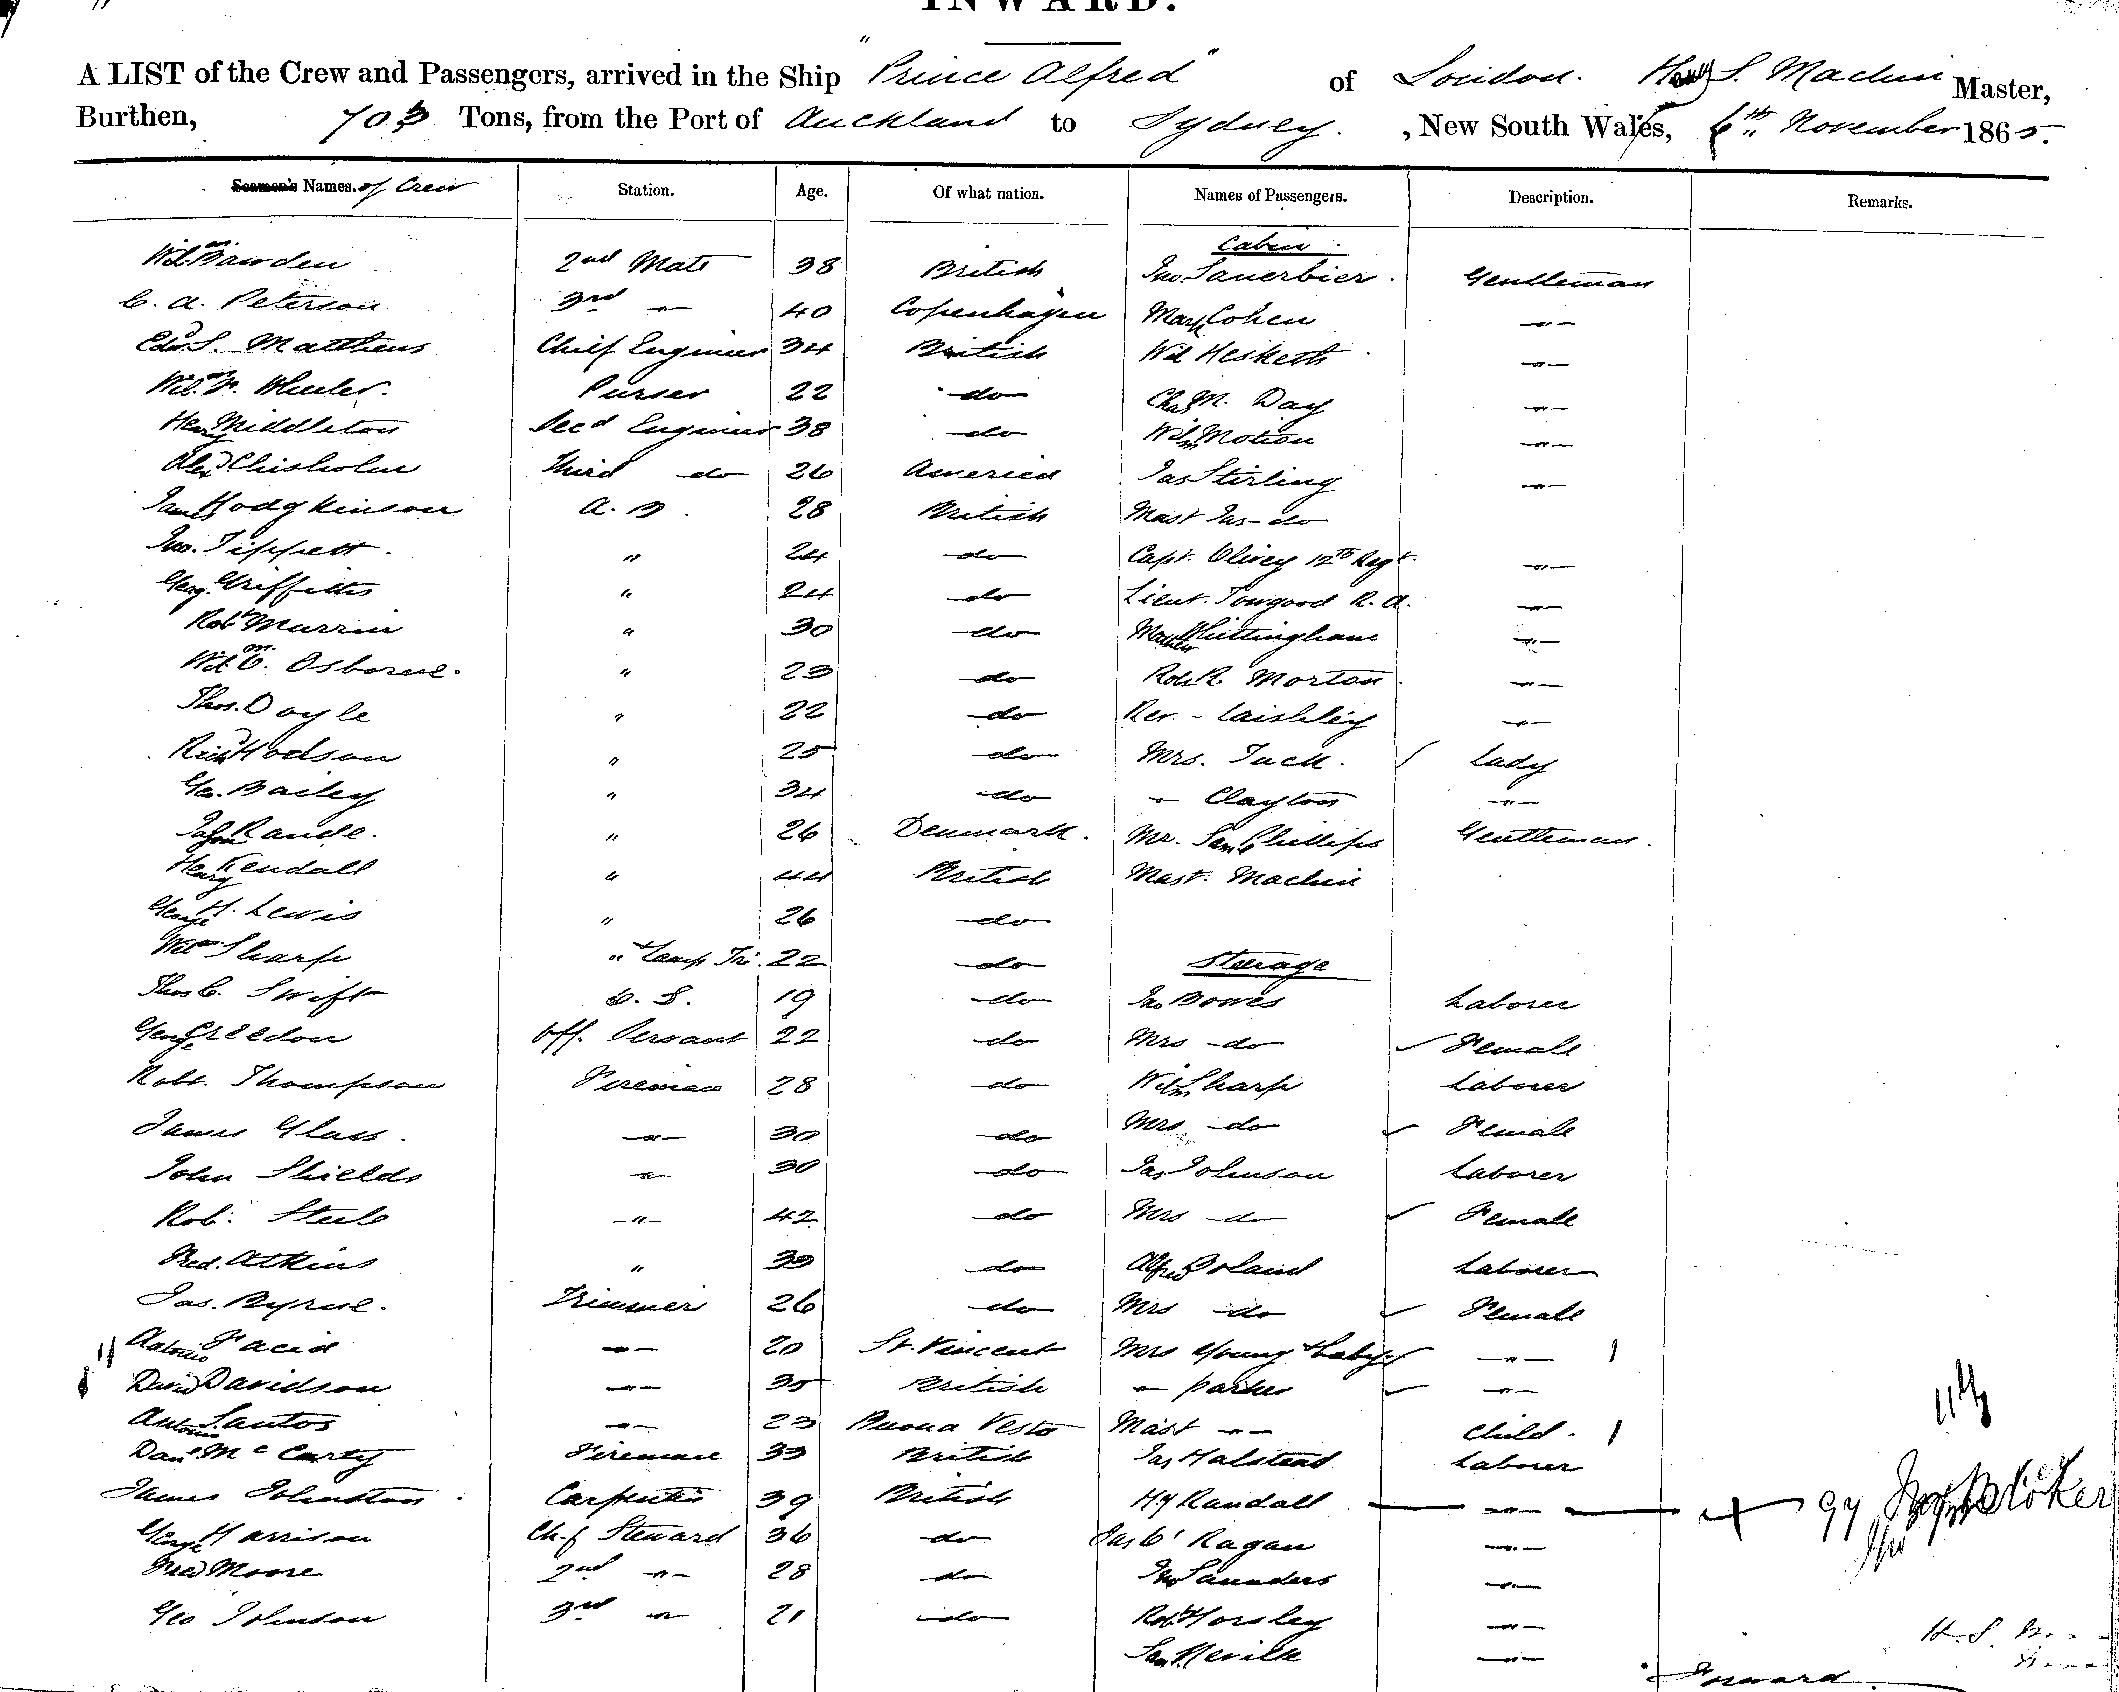 INWARD.
A LIST of the Crew and Passengers, arrived in the Ship "Prince Alfred" of London. Henry S. Machin Master,
Burthen, 703 Tons, from the Port of Auckland to Sydney. , New South Wales, 6th November 1865.
Seamen's Names. of Crew Station. Age. Of what nation. Names of Passengers. Description. Remarks.
Cabin
Wm Bawden 2nd Mate 38 British Jno. Sauerbier. Gentleman
C. A. Peterson 3rd -"- 40 Copenhagen Mark Cohen -"-
Edwd. S. Matthews Chief Engineer 34 British Wm Hesketh -"-
Wm. Wheeler. Purser 22 do Chas M. Day -"-
Henry Middleton Secd Engineer 38 do Wilm Motion -"-
Alexr Chisholm Third do 26 America Jas Stirling -"-
James Hodgkinson A. B. 28 British Mast Jas - do
Jno. Tippett. " 24 do Capt. Olivey 12th Regt. -"-
Georg. Griffiths " 24 do Lieut. Towgood R. A. -"-
Robt Murrin " 30 do Matthew Whittingham -"-
Wm C. Osborne. " 23 do Robt R. Morton -"-
Thos. Doyle " 22 do Rev. - Laishley -"-
Richd Hodson " 25 do Mrs. Tuck. Lady
Geo. Bailey " 34 do -"- Clayton -"-
John Randle. " 26 Denmark. Mr. Saml Phillips Gentleman.
Henry Kendall " 44 British Mast. Machin
George H. Lewis " 26 do
Wm Sharp " & Lamp Tri. 22 do Steerage
Thos C. Swift O. S. 19 do Jno Bowes Laborer
George Creedon Off. Servant 22 do Mrs - do Female
Robt. Thompson Fireman 28 do Wilm Sharp Laborer
James Glass. -"- 30 do Mrs - do Female
John Shields -"- 30 do Jas Johnson Laborer
Rob. Steele -"- 42 do Mrs - do Female
Fred. Atkins " 39 do Alfred Boland Laborer
Jas. Byrne. Trimmer 26 do Mrs - do Female
Antonio -"- 20 St. Vincent Mrs Young & baby -"- 1
David Davidson -"- 35 British -"- Parker -"-
Antonio Santos -"- 23 Buona Vesta Mast -"- Child. 1
Danl McCarty Fireman 33 British Jas Halstead Laborer
James Johnston Carpenter 39 British Hy Randall -"-
George Harrison Chf Steward 36 do Jas O'Ragan -"-
Fred Moore 2nd -"- 28 do Jno Saunders -"-
Geo Johnson 3rd -"- 21 do Robt Horsley -"-
Saml Nevill -"-
Inward